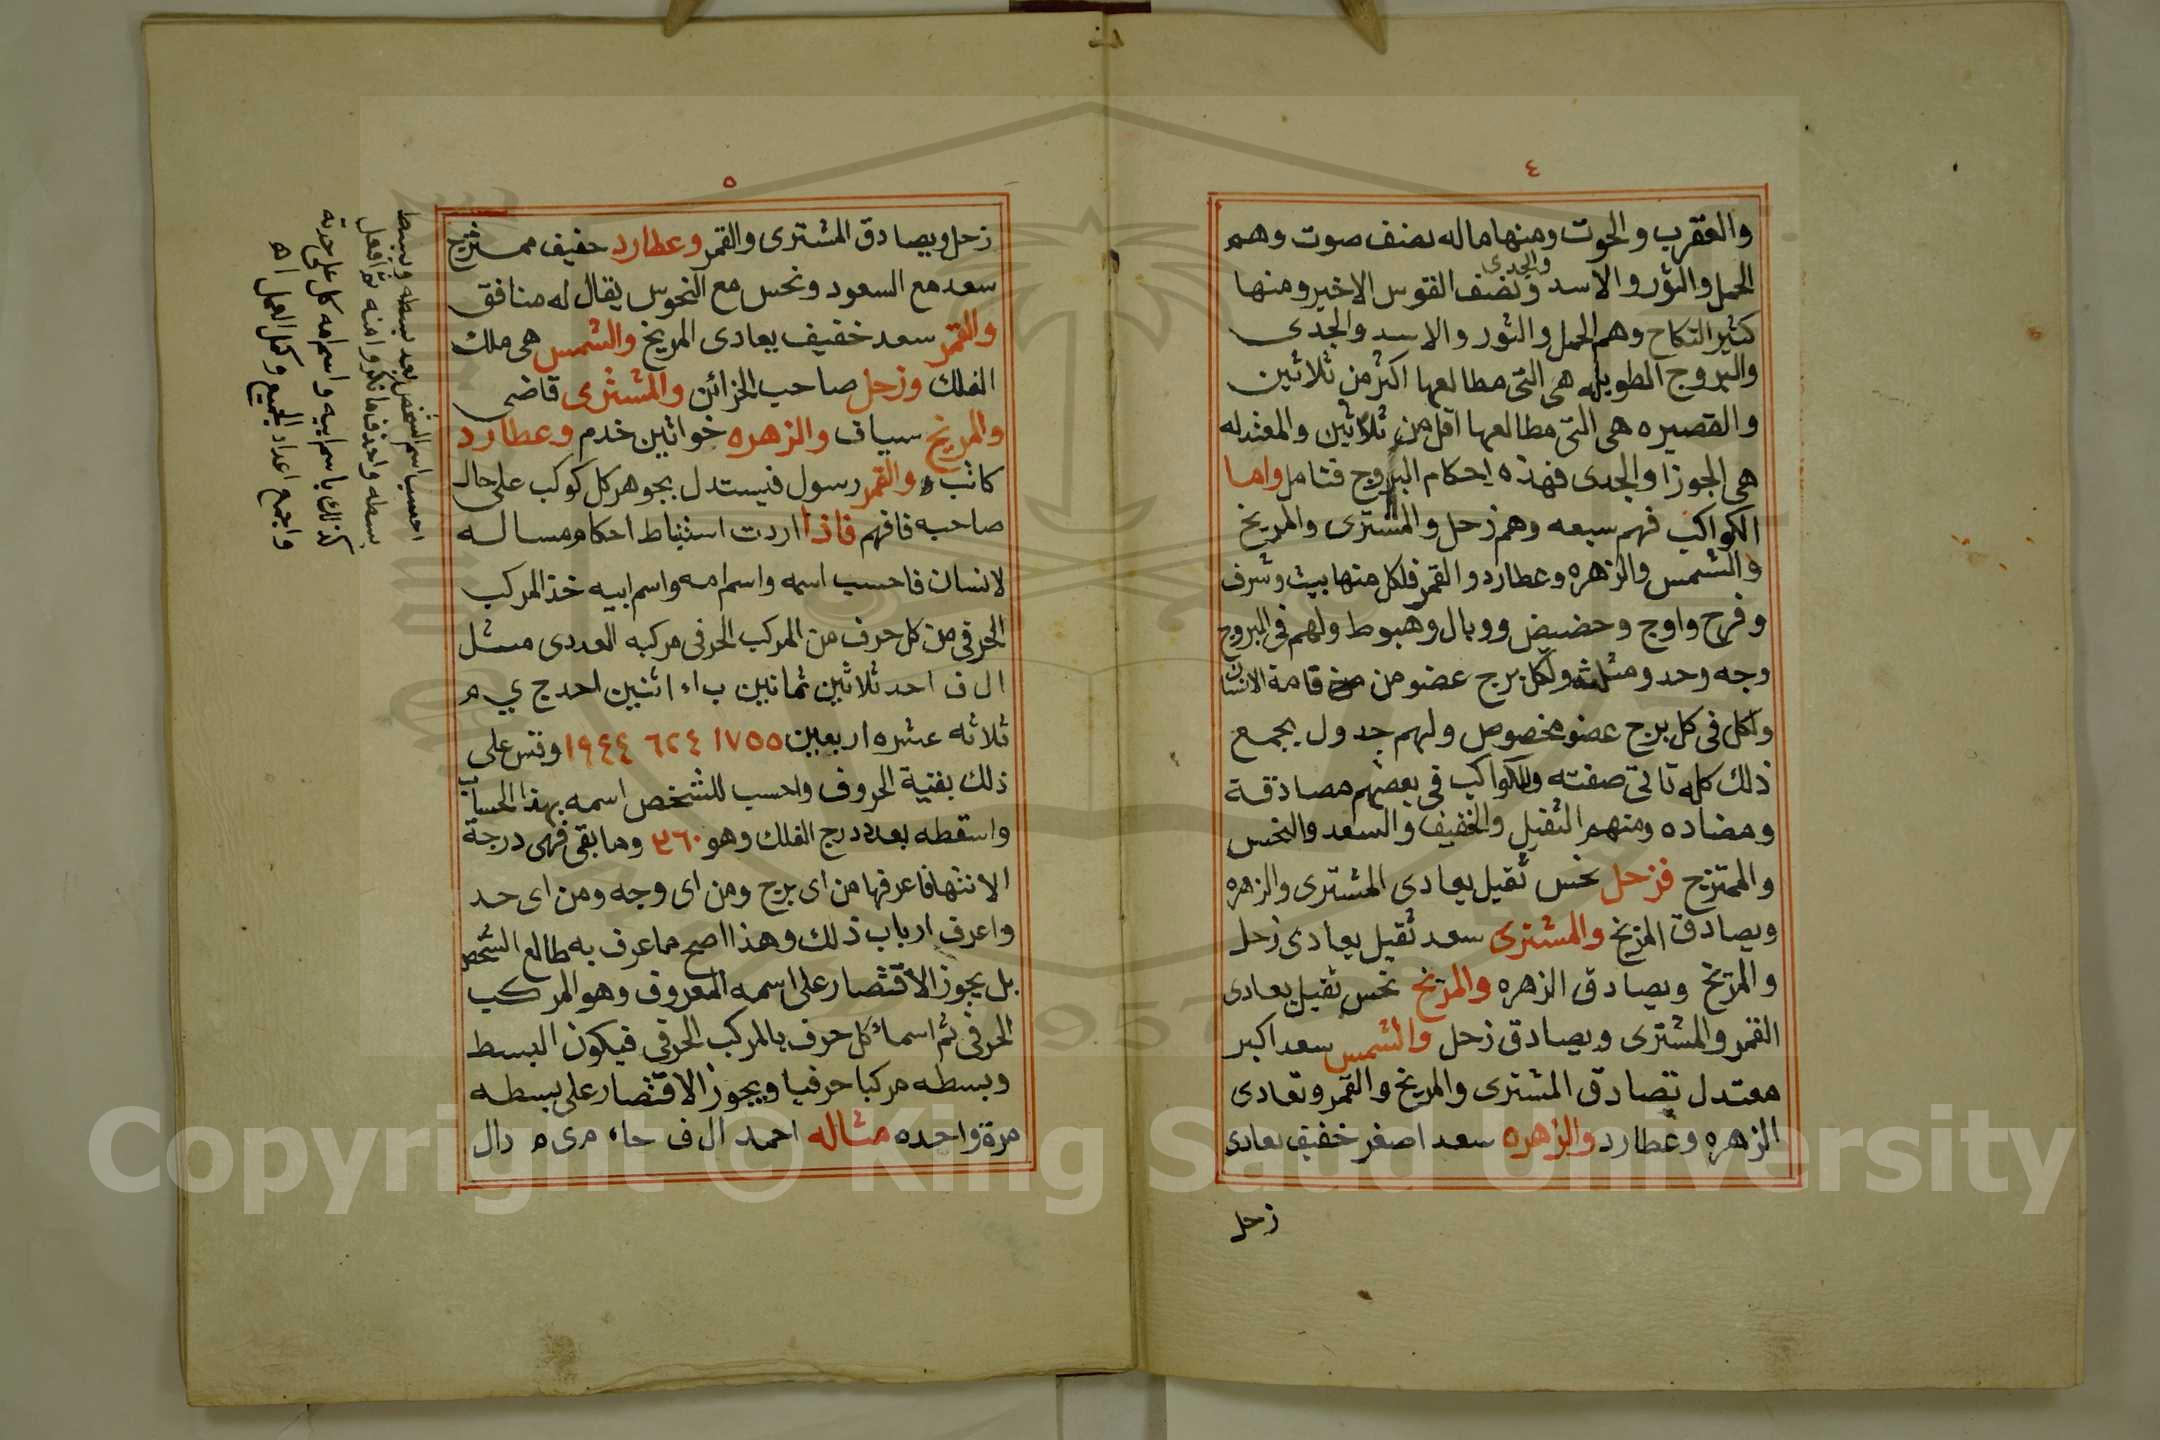 ٤
والعقرب والحوت ومنها ماله نصف صوت وهم
الحمل والثور والاسد ونصف القوس الاخير ومنها
والجدى
كثير النكاح وهم الحمل والثور والاسد والجدى
والبروج الطويله هى التى مطالعها اكثر من ثلاثين
والقصيره هى التى مطالعها اقل من ثلاثين والمعتدله
هى الجوزا والجدى فهذه احكام البروج فتامل واما
الكواكب فهم سبعه وهم زحل والمشترى والمريخ
والشمس والزهره وعطارد والقمر فلكل منها بيت وشرف
وفرح واوج وحضيض ووبال وهبوط ولهم فى البروج
وجه وحد ومثلثه ولكل برج عضو من قامة الانسان
ولكل فى كل برج عضو مخصوص ولهم جدول يجمع
ذلك كله تاتى صفته وللكواكب فى بعضهم مصادقة
ومضاده ومنهم الثقيل والخفيف والسعد والنحس
والممتزج فزحل نحس ثقيل يعادى المشترى والزهره
ويصادق المريخ والمشترى سعد ثقيل يعادى زحل
والمريخ ويصادق الزهره والمريخ نحس ثقيل يعادى
القمر والمشترى ويصادق زحل والشمس سعد اكبر
معتدل تصادق المشترى والمريخ والقمر وتعادى
الزهره وعطارد والزهره سعد اصغر خفيف يعادى
زحل
٥
زحل ويصادق المشترى والقمر وعطارد خفيف ممتزج
سعد مع السعود ونحس مع النحوس يقال له منافق
والقمر سعد خفيف يعادى المريخ والشمس هى ملك
الفلك وزحل صاحب الخزائن والمشترى قاضى
والمريخ سياف والزهره خواتين خدم وعطارد
كاتب والقمر رسول فيستدل بجوهر كل كوكب على حال
صاحبه فافهم فاذا اردت استنباط احكام مساله
لانسان فاحسب اسمه واسم امه واسم ابيه خذ المركب
الحرفى من كل حرف من المركب الحرفى مركبه العددى مثل
ال ف احد ثلاثين ثمانين ب اء اثنين احد ج ي م
ثلاثه عشره اربعين ١٧٥٥ ٦٢٤ ١٩٤٤ وقس على
ذلك بقية الحروف واحسب للشخص اسمه بهذا الحساب
واسقطه بعدد درج الفلك وهو ٣٦٠ وما بقى فهى درجة
الانتها فاعرفها من اى برج ومن اى وجه ومن اى حد
واعرف ارباب ذلك وهذا اصح ما عرف به طالع الشخص
بل يجوز الاقتصار على اسمه المعروف وهو المركب
الحرفى ثم اسماء كل حرف بالمركب الحرفى فيكون البسط
وبسطه مركبا حرفيا ويجوز الاقتصار على بسطه
مرة واحده مثاله احمد ال ف حاء م ى م دال
احسب اسم الشخص بعد بسطه وبسط
بسطه واحذف ما تكرر منه ثم افعل
كذلك باسم ابيه واسم امه كل على حدته
واجمع اعداد الجميع وكمل العمل اه
Copyright © King Saud University
1957